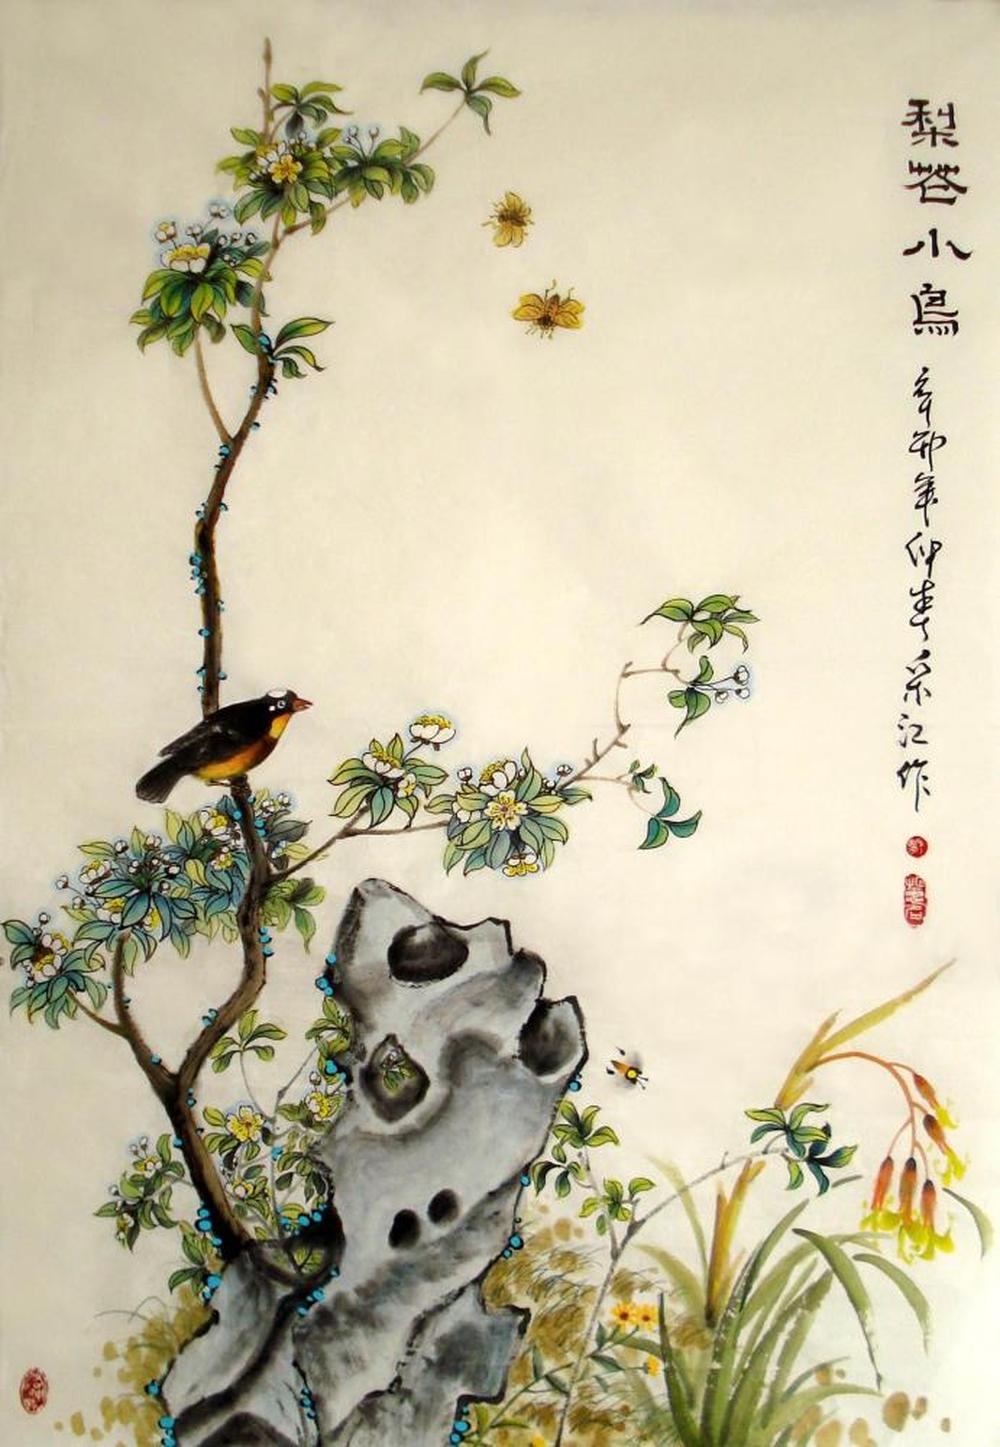 梨花小鸟
辛卯年仲春采江作